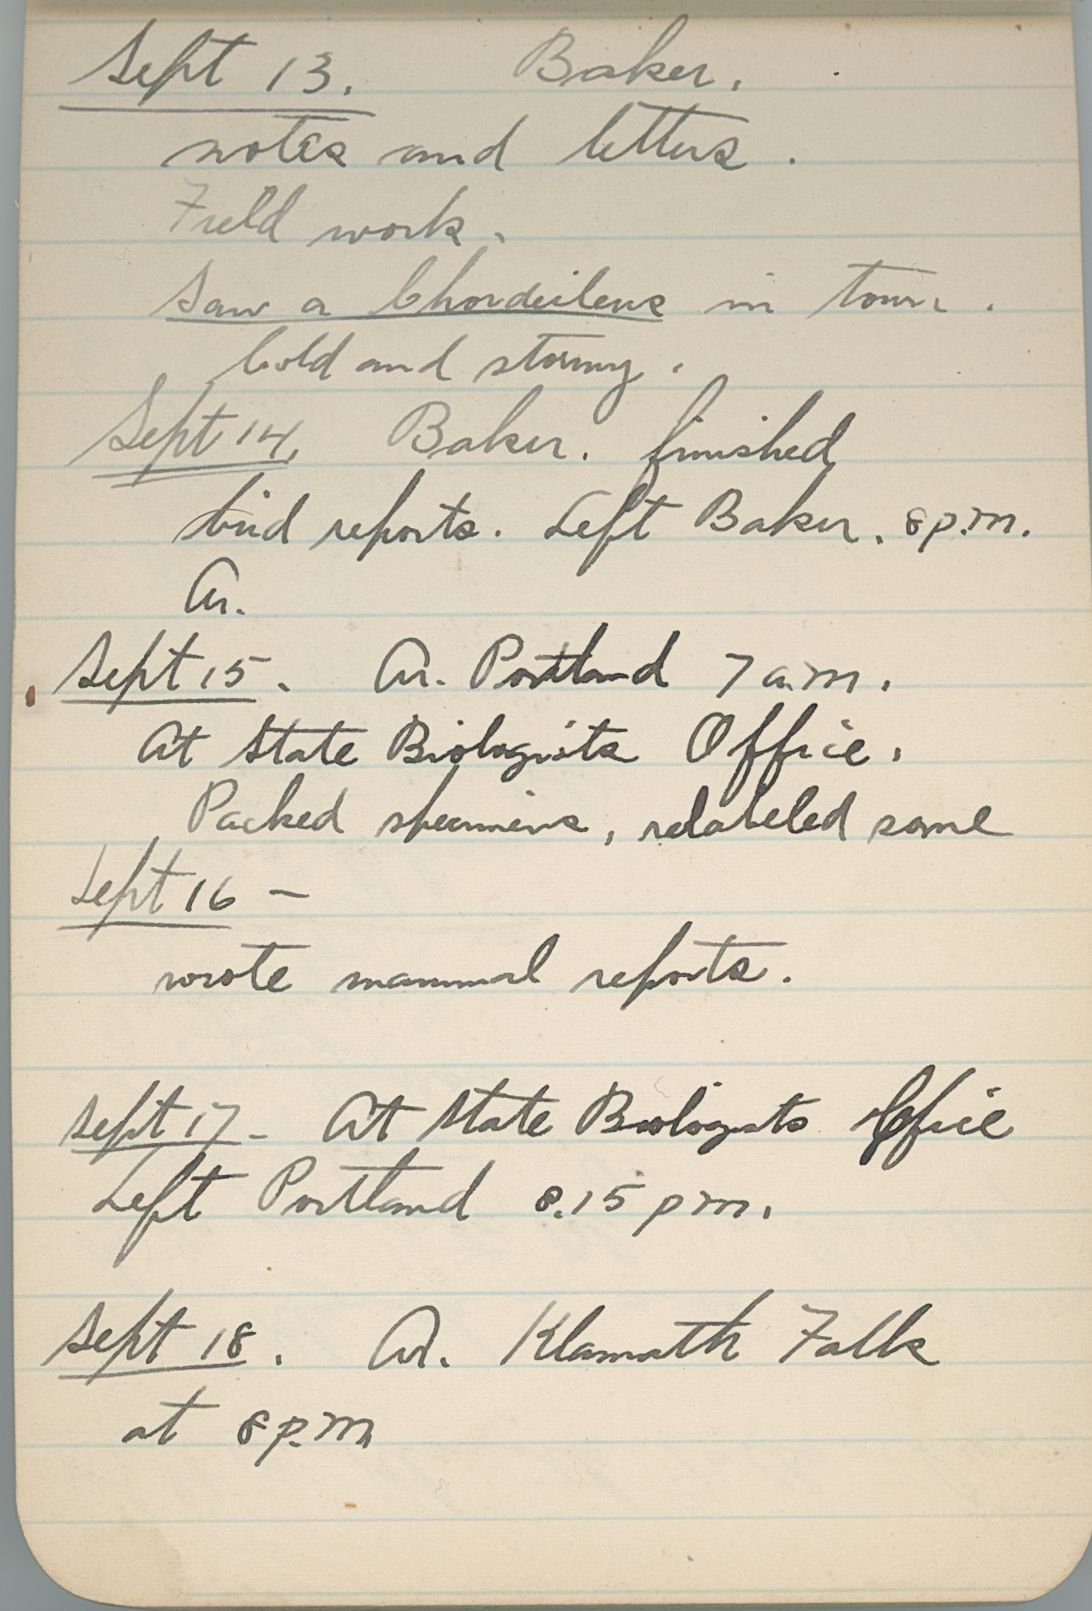 Sept 13. Baker.
notes and letters.
Field work.
Saw a Chordeileus in town.
Cold and stormy.
Sept 14. Baker. finished
bird reports. Left Baker. 8 p.m.
Ar.
Sept 15. Ar. Portland 7 a.m.
At State Biologists Office.
Packed specimens, relabeled some
Sept 16 —
wrote mammal reports.
Sept 17 - At State Biologists Office
Left Portland 8.15 p m.
Sept 18. Ar. Klamath Falls
at 8 p.m